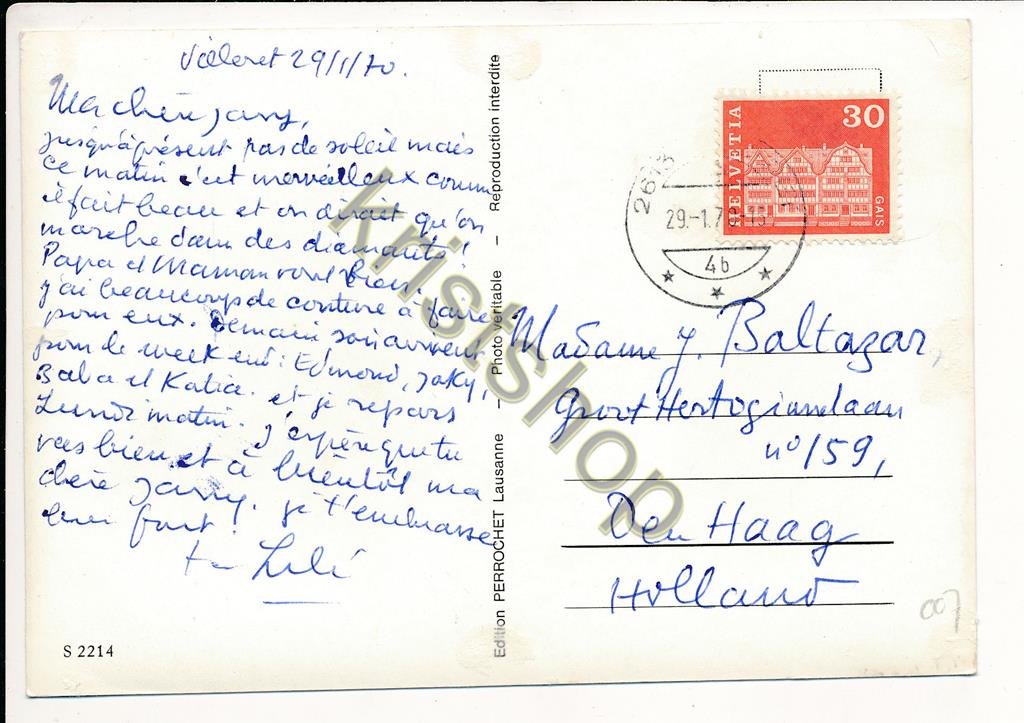 Villeret 29/1/70.
Ma chère Jany,
jusqu'à présent pas de soleil mais
ce matin c'est merveilleux comme
il fait beau et on dirait qu'on
marche dans des diamants!
Papa et Maman vont bien.
j'ai beaucoup de couture à faire
pour eux. Demain soir arrivent
pour le week end: Edmond, Jaky,
Baba et Katia. et je repars
Lundi matin. J'espère que tu
vas bien et à bientôt ma
chère Jany. je t'embrasse
bien fort!
ta Lili
S 2214
Edition PERROCHET Lausanne – Photo véritable – Reproduction interdite
HELVETIA
30
GAIS
2613
29.-1.70-15
4b
Madame J. Baltazar,
Groot Hertoginnelaan
nº 159,
Den Haag
Holland
kristshop